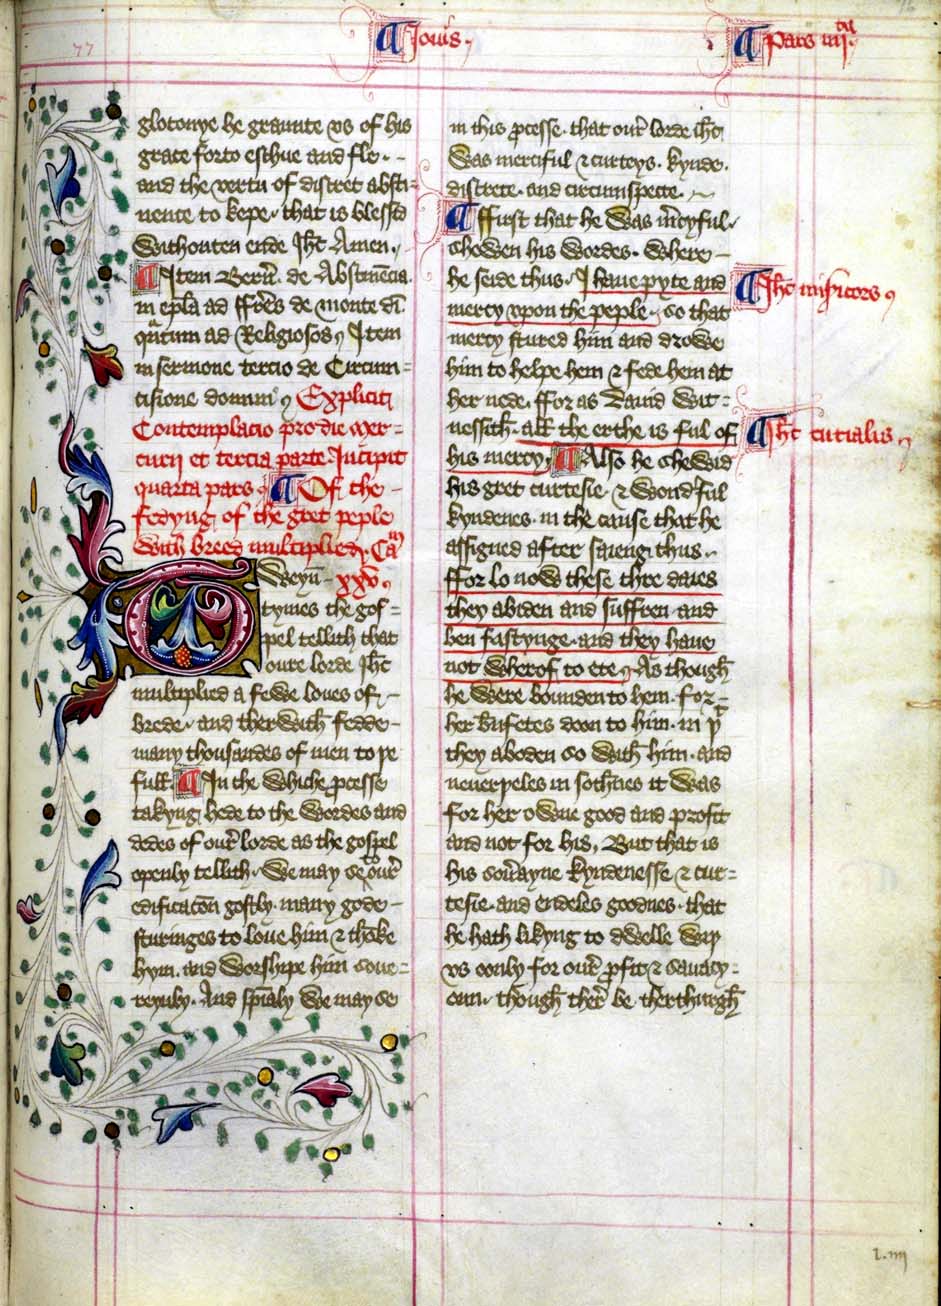 77
¶ Jouis.
¶ Pars iiijta.
glotonye he graunte vs of his
grace forto eschue and fle. -
and the vertu of discret absti-
nence to kepe. that is blessid
withouten ende Jhc Amen.
¶ Item Bern. de Abstinencia.
in epla ad ffres de monte di.
qrtum ad Religiosos, Item
in sermone tercio de Circum-
cisione domini, Explicit
Contemplacio pro die mer-
curii et tercia parte. Incipit
quarta pars. ¶ Of the -
fedyng of the gret peple
with breed multiplied, Cam
xxv.
TWeyn -
tymes the gos-
pel tellith that
oure lorde Jhc
multiplied a fewe loues of -
brede. and ther with fedde -
many thousandes of men to þe
full. ¶ In the whiche pcesse
takyng hede to the wordes and
dedes of our lorde as the gospel
openly tellith. We may se to our
edificacon gostly. many gode -
stiringes to loue him & thonke
hym. and worshipe him soue-
reynly. And spialy we may se
in this pcesse. that our lorde ihc
was merciful & curteys. kynde.
discrete. and circumspecte.
¶ ffirst that he was mcyful.
shewen his wordes. where -
he seide thus. I haue pyte and
mercy vpon the peple. so that
mercy stired him and drowe
him to helpe hem & fede hem at
her nede. ffor as Dauid wit-
nessith. all the erthe is ful of
his mercy, ¶ Also he shewid
his gret curtesie. & wondful
kyndenes. in the cause that he
assigned after saieng thus.
ffor lo now these thre daies
they abiden and suffren. and
ben fastynge. and they haue
not wherof to ete, As though
he were bounden to hem. for -
her bnfetes doon to him. in þt
they aboden so with him. and
neuerþeles in sothnes it was
for her owne good and profit
and not for his, But that is
his souayne kyndenesse & cur-
tesie. and endeles goodnes. that
he hath likyng to dwelle wiþ
vs oonly for our pfit & sauacy-
oun. though ther be therthurgh
¶ Jhc misicors,
¶ Jhc curialis,